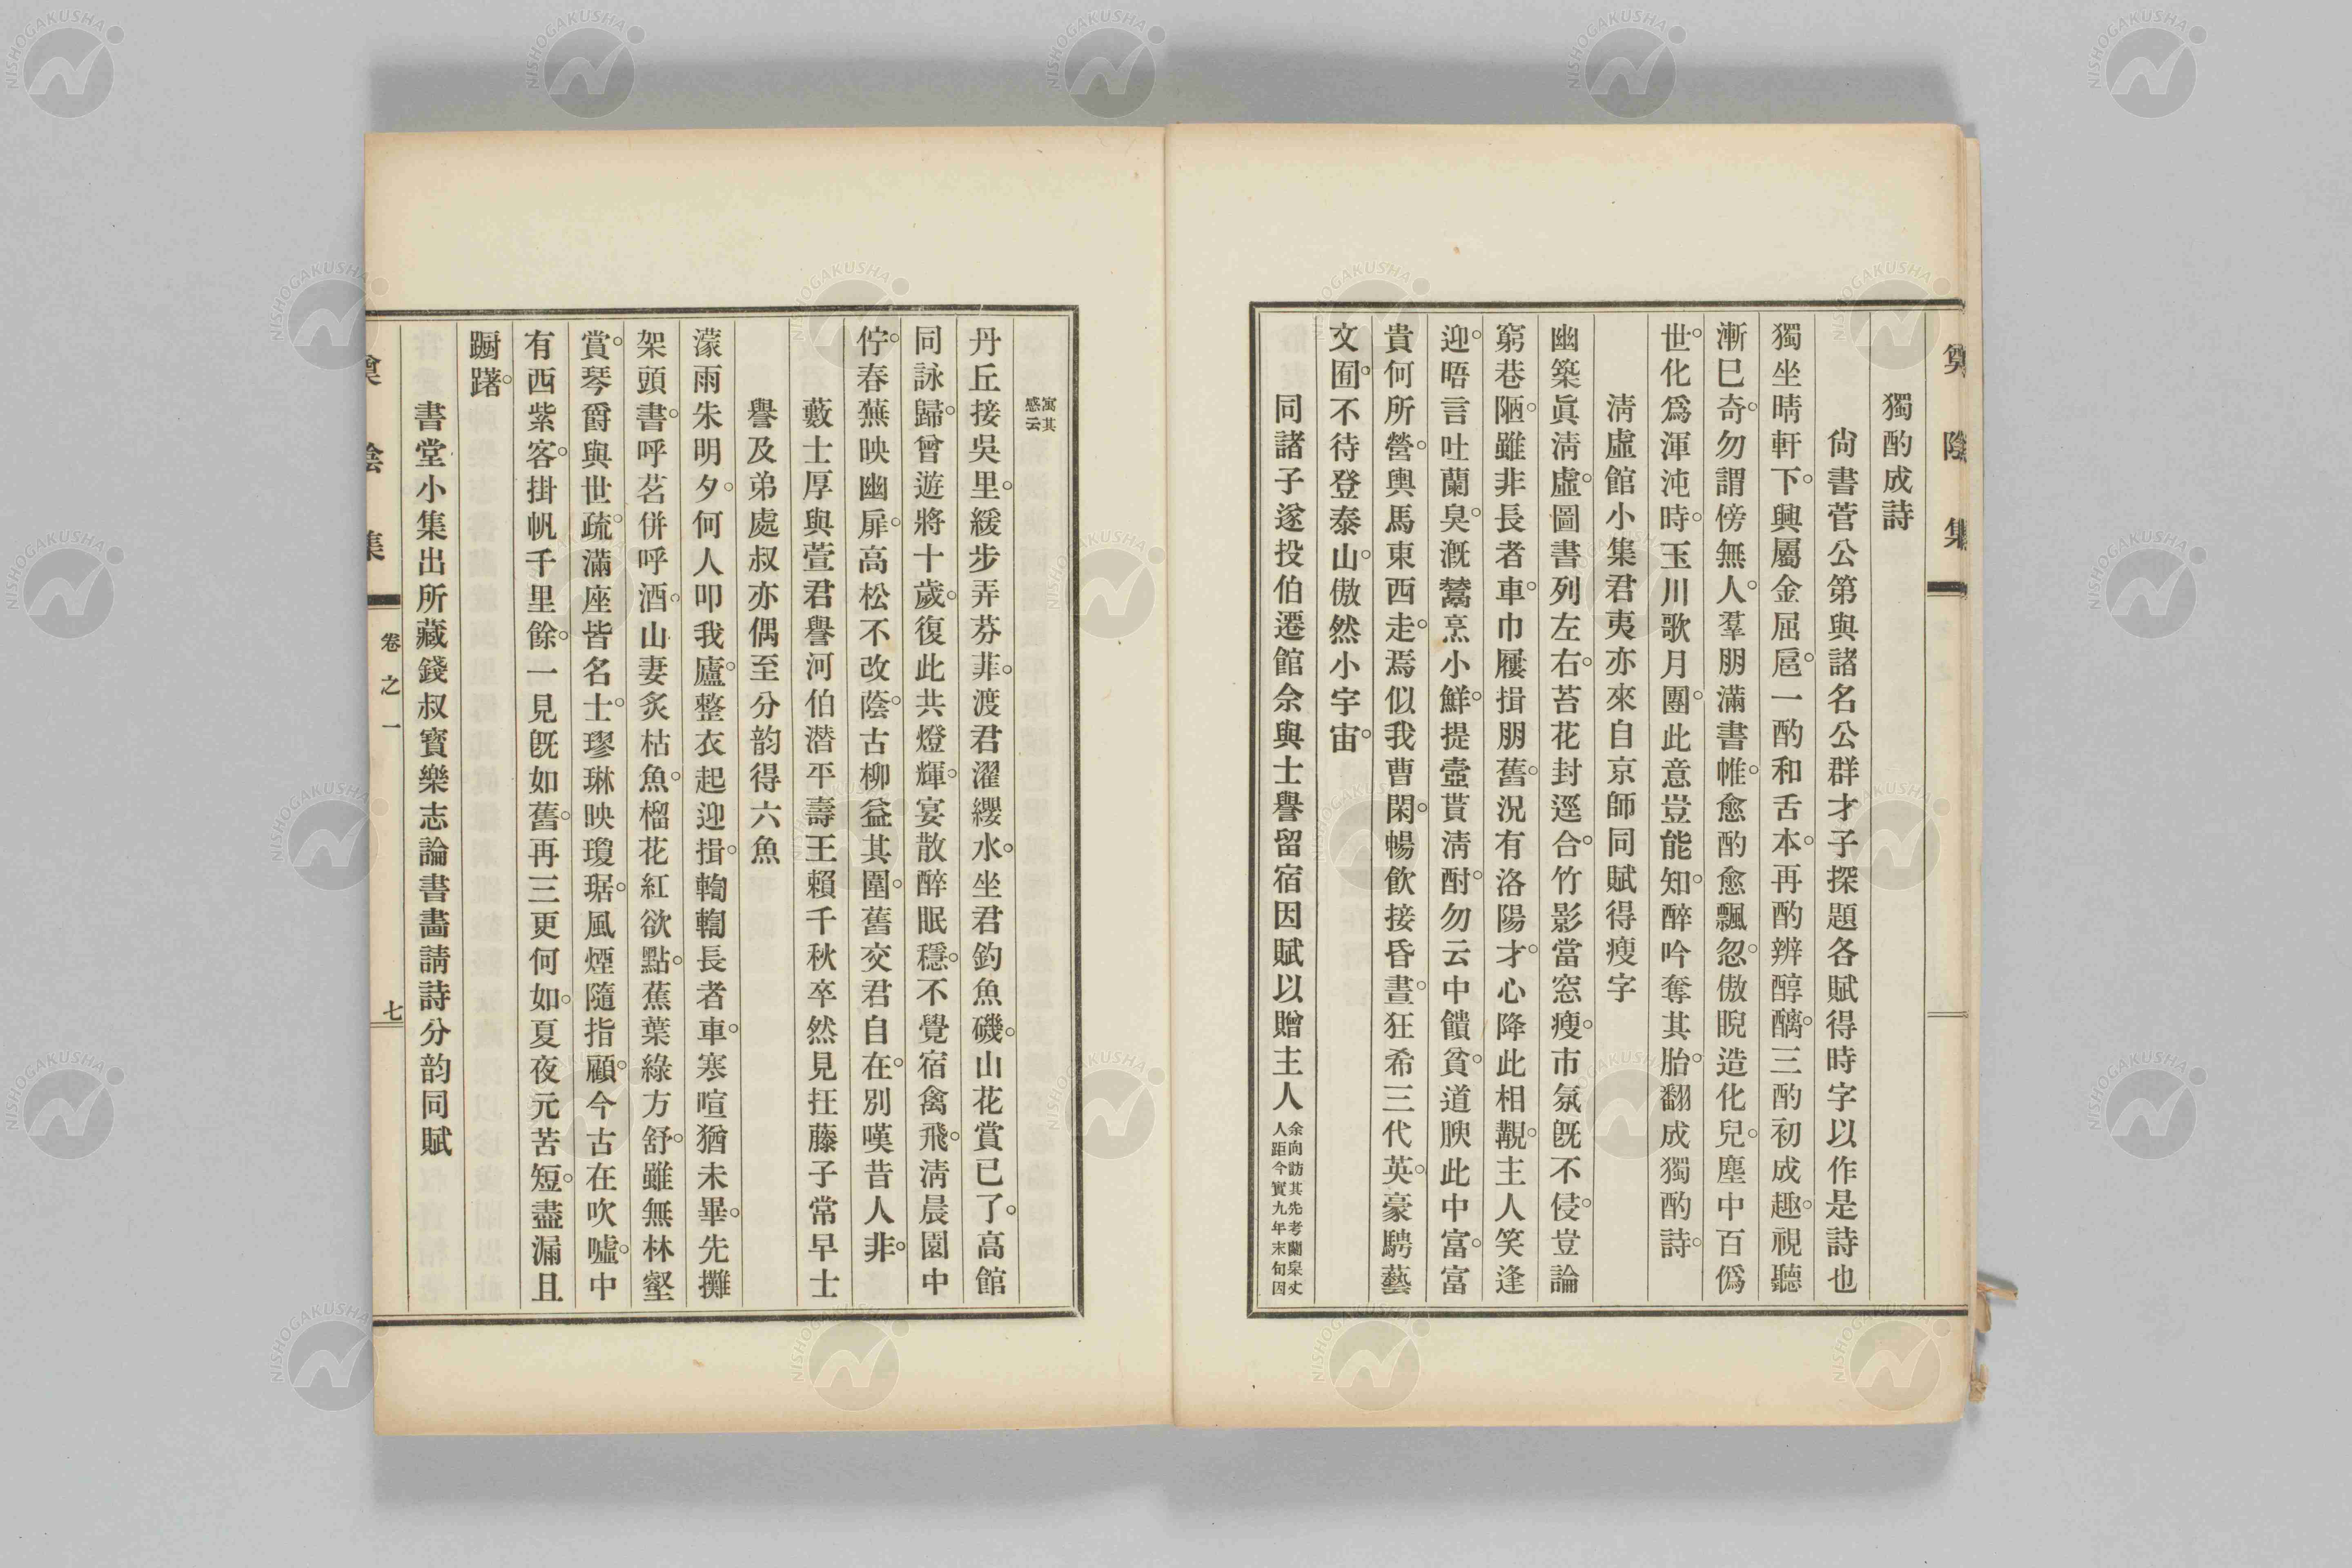 奠陰集
獨酌成詩
尙書菅公第與諸名公群才子探題各賦得時字以作是詩也
獨坐晴軒下。興屬金屈巵。一酌和舌本。再酌辨醇醨。三酌初成趣。視聽
漸巳奇。勿謂傍無人。羣朋滿書帷。愈酌愈飄忽。傲睨造化兒。塵中百僞
世。化爲渾沌時。玉川歌月團。此意豈能知。醉吟奪其胎。翻成獨酌詩。
淸虛館小集君夷亦來自京師同賦得瘦字
幽築眞淸虛。圖書列左右。苔花封逕合。竹影當窓瘦。市氛旣不侵。豈論
窮巷陋。雖非長者車。巾屨揖朋舊。況有洛陽才。心降此相覯。主人笑逢
迎。晤言吐蘭臭。漑鬵烹小鮮。提壷貰淸酎。勿云中饋貧。道腴此中富。富
貴何所營。輿馬東西走。焉似我曹閑。暢飮接昏晝。狂希三代英。豪騁藝
文囿。不待登泰山。傲然小宇宙。
同諸子遂投伯遷館余與士譽留宿因賦以贈主人
余向訪其先考蘭泉丈
人距今實九年末旬因
寓其
感云
丹丘接吳里。緩步弄芬菲。渡君濯纓水。坐君釣魚磯。山花賞已了。高館
同詠歸。曾遊將十歲。復此共燈輝。宴散醉眠穩。不覺宿禽飛。淸晨園中
佇。春蕪映幽扉。高松不改蔭。古柳益其圍。舊交君自在。別嘆昔人非。
藪士厚與萱君譽河伯潛平壽王賴千秋卒然見抂藤子常早士
譽及弟處叔亦偶至分韵得六魚
濛雨朱明夕。何人叩我廬。整衣起迎揖。輷輷長者車。寒喧猶未畢。先攤
架頭書。呼茗併呼酒。山妻炙枯魚。榴花紅欲點。蕉葉綠方舒。雖無林壑
賞。琴爵與世疏。滿座皆名士。璆琳映瓊琚。風煙隨指顧。今古在吹噓。中
有西紫客。掛帆千里餘。一見旣如舊。再三更何如。夏夜元苦短。盡漏且
蹰躇。
書堂小集出所藏錢叔寶樂志論書畵請詩分韵同賦
奠陰集
卷之一
七